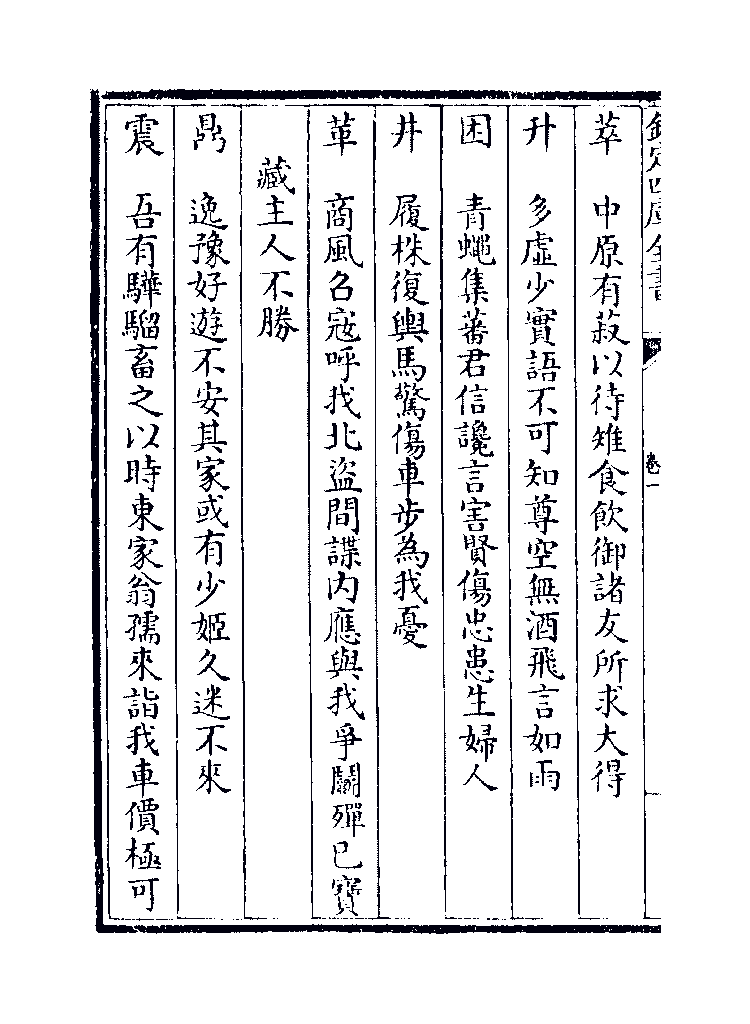 欽定四庫全書
卷一
萃 中原有菽以待雉食飲御諸友所求大得
升 多虛少實語不可知尊空無酒飛言如雨
困 青蠅集蕃君信讒言害賢傷忠患生婦人
井 履株復輿馬驚傷車步為我憂
革 商風召寇呼我北盜間諜内應與我爭鬭殫已寶
藏主人不勝
鼎 逸豫好遊不安其家或有少姬久迷不來
震 吾有驊騮畜之以時東家翁孺來詣我車價極可